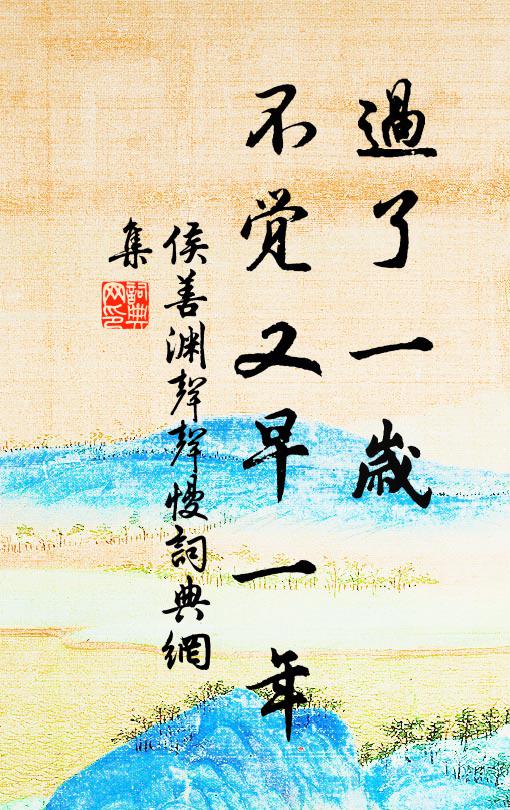 過了一歲
不觉又早一年
侯善渊聲聲慢詞典網
集
詞典
网印